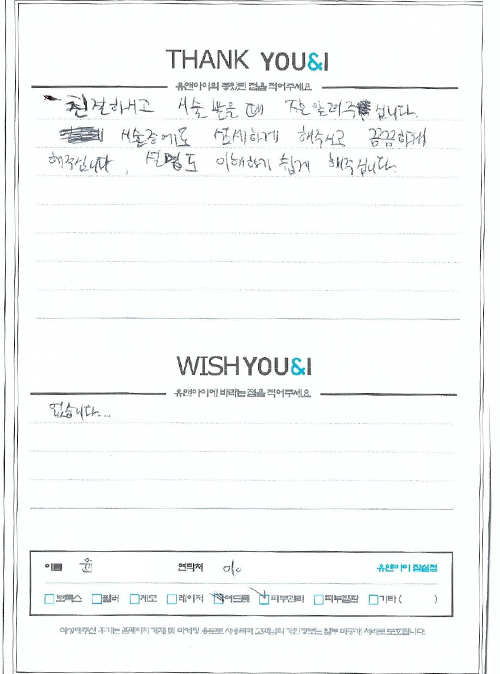 THANK YOU&I
유앤아이의 좋았던 점을 적어주세요.
친절하시고 시술 받을 때 잘 알려주십니다.
시술중에도 섬세하게 해주시고 꼼꼼하게
해주십니다. 설명도 이해하기 쉽게 해주십니다.
WISH YOU&I
유앤아이에 바라는 점을 적어주세요.
없습니다...
이름 윤 연락처 010 유앤아이 잠실점
보톡스 필러 제모 레이저 여드름 피부관리 피부질환 기타 ( )